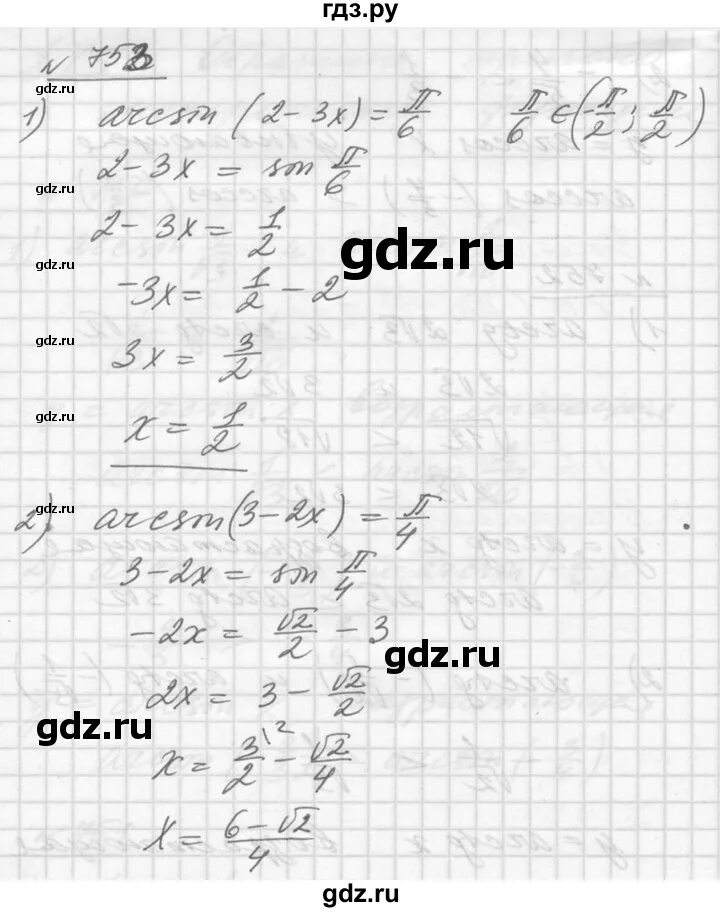 гдз.ру
№ 753
gdz.ru
1) arcsin (2 - 3x) = π/6     π/6 ∈ (π/2 ; π/2)
gdz.ru
2 - 3x = sin π/6
gdz.ru
2 - 3x = 1/2
gdz.ru
gdz.ru
-3x = 1/2 - 2
gdz.ru
3x = 3/2
gdz.ru
x = 1/2
gdz.ru
2) arcsin (3 - 2x) = π/4
3 - 2x = sin π/4
-2x = √2/2 - 3
gdz.ru
2x = 3 - √2/2
gdz.ru
x = 3\2/2 - √2/4
x = (6 - √2)/4
gdz.ru